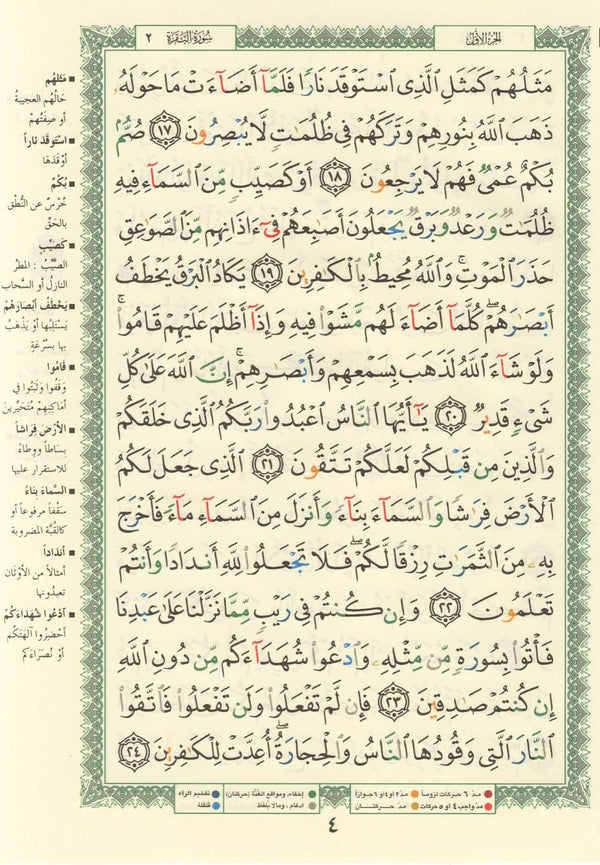 الجزء الأول
سورة البقرة ٢
مَثَلُهُمْ كَمَثَلِ ٱلَّذِى ٱسْتَوْقَدَ نَارًا فَلَمَّآ أَضَآءَتْ مَا حَوْلَهُۥ
ذَهَبَ ٱللَّهُ بِنُورِهِمْ وَتَرَكَهُمْ فِى ظُلُمَٰتٍ لَّا يُبْصِرُونَ ١٧ صُمٌّۢ
بُكْمٌ عُمْىٌ فَهُمْ لَا يَرْجِعُونَ ١٨ أَوْ كَصَيِّبٍ مِّنَ ٱلسَّمَآءِ فِيهِ
ظُلُمَٰتٌ وَرَعْدٌ وَبَرْقٌ يَجْعَلُونَ أَصَٰبِعَهُمْ فِىٓ ءَاذَانِهِم مِّنَ ٱلصَّوَٰعِقِ
حَذَرَ ٱلْمَوْتِ ۚ وَٱللَّهُ مُحِيطٌۢ بِٱلْكَٰفِرِينَ ١٩ يَكَادُ ٱلْبَرْقُ يَخْطَفُ
أَبْصَٰرَهُمْ ۖ كُلَّمَآ أَضَآءَ لَهُم مَّشَوْا۟ فِيهِ وَإِذَآ أَظْلَمَ عَلَيْهِمْ قَامُوا۟ ۚ
وَلَوْ شَآءَ ٱللَّهُ لَذَهَبَ بِسَمْعِهِمْ وَأَبْصَٰرِهِمْ ۚ إِنَّ ٱللَّهَ عَلَىٰ كُلِّ
شَىْءٍ قَدِيرٌ ٢٠ يَٰٓأَيُّهَا ٱلنَّاسُ ٱعْبُدُوا۟ رَبَّكُمُ ٱلَّذِى خَلَقَكُمْ
وَٱلَّذِينَ مِن قَبْلِكُمْ لَعَلَّكُمْ تَتَّقُونَ ٢١ ٱلَّذِى جَعَلَ لَكُمُ
ٱلْأَرْضَ فِرَٰشًا وَٱلسَّمَآءَ بِنَآءً وَأَنزَلَ مِنَ ٱلسَّمَآءِ مَآءً فَأَخْرَجَ
بِهِۦ مِنَ ٱلثَّمَرَٰتِ رِزْقًا لَّكُمْ ۖ فَلَا تَجْعَلُوا۟ لِلَّهِ أَندَادًا وَأَنتُمْ
تَعْلَمُونَ ٢٢ وَإِن كُنتُمْ فِى رَيْبٍ مِّمَّا نَزَّلْنَا عَلَىٰ عَبْدِنَا
فَأْتُوا۟ بِسُورَةٍ مِّن مِّثْلِهِۦ وَٱدْعُوا۟ شُهَدَآءَكُم مِّن دُونِ ٱللَّهِ
إِن كُنتُمْ صَٰدِقِينَ ٢٣ فَإِن لَّمْ تَفْعَلُوا۟ وَلَن تَفْعَلُوا۟ فَٱتَّقُوا۟
ٱلنَّارَ ٱلَّتِى وَقُودُهَا ٱلنَّاسُ وَٱلْحِجَارَةُ ۖ أُعِدَّتْ لِلْكَٰفِرِينَ ٢٤
■ مَثَلُهُم
حَالُهُم العجيبةُ
أو صِفتُهُمْ
■ اسْتَوقَدَ ناراً
أوْقَدَهَا
■ بُكْمٌ
خُرْسٌ عن النُّطْقِ
بالحَقِّ
■ كَصَيِّبٍ
الصَّيِّبُ : المطرُ
النازلُ أو السَّحاب
■ يَخْطَفُ أبْصَارَهُمْ
يَسْتَلِبُها أوْ يَذْهَبُ
بها بسُرْعَةٍ
■ قَامُوا
وَقَفُوا وثَبَتُوا في
أماكِنِهِمْ مُتَحَيِّرِين
■ الأَرْضَ فِرَاشاً
بسَاطاً ووِطَاءً
للاستقرارِ عليها
■ السَّماءَ بِناءً
سَقْفاً مرفوعاً أو
كالقُبَّة المضْروبة
■ أنداداً
أمثالاً من الأوْثَانِ
تعبدُونَها
■ ادْعُوا شُهَدَاءَكُمْ
أحْضِرُوا آلهتَكُم
أوْ نُصَرَاءَكم
مدّ ٦ حركات لزوماً
مدّ ٢ أو ٤ أو ٦ جوازاً
إخفاء، ومواقع الغُنَّة (حركتان)
تفخيم الراء
مدّ واجب ٤ أو ٥ حركات
مدّ حركتان
ادغام، ومالا يُلفظ
قلقلة
٤